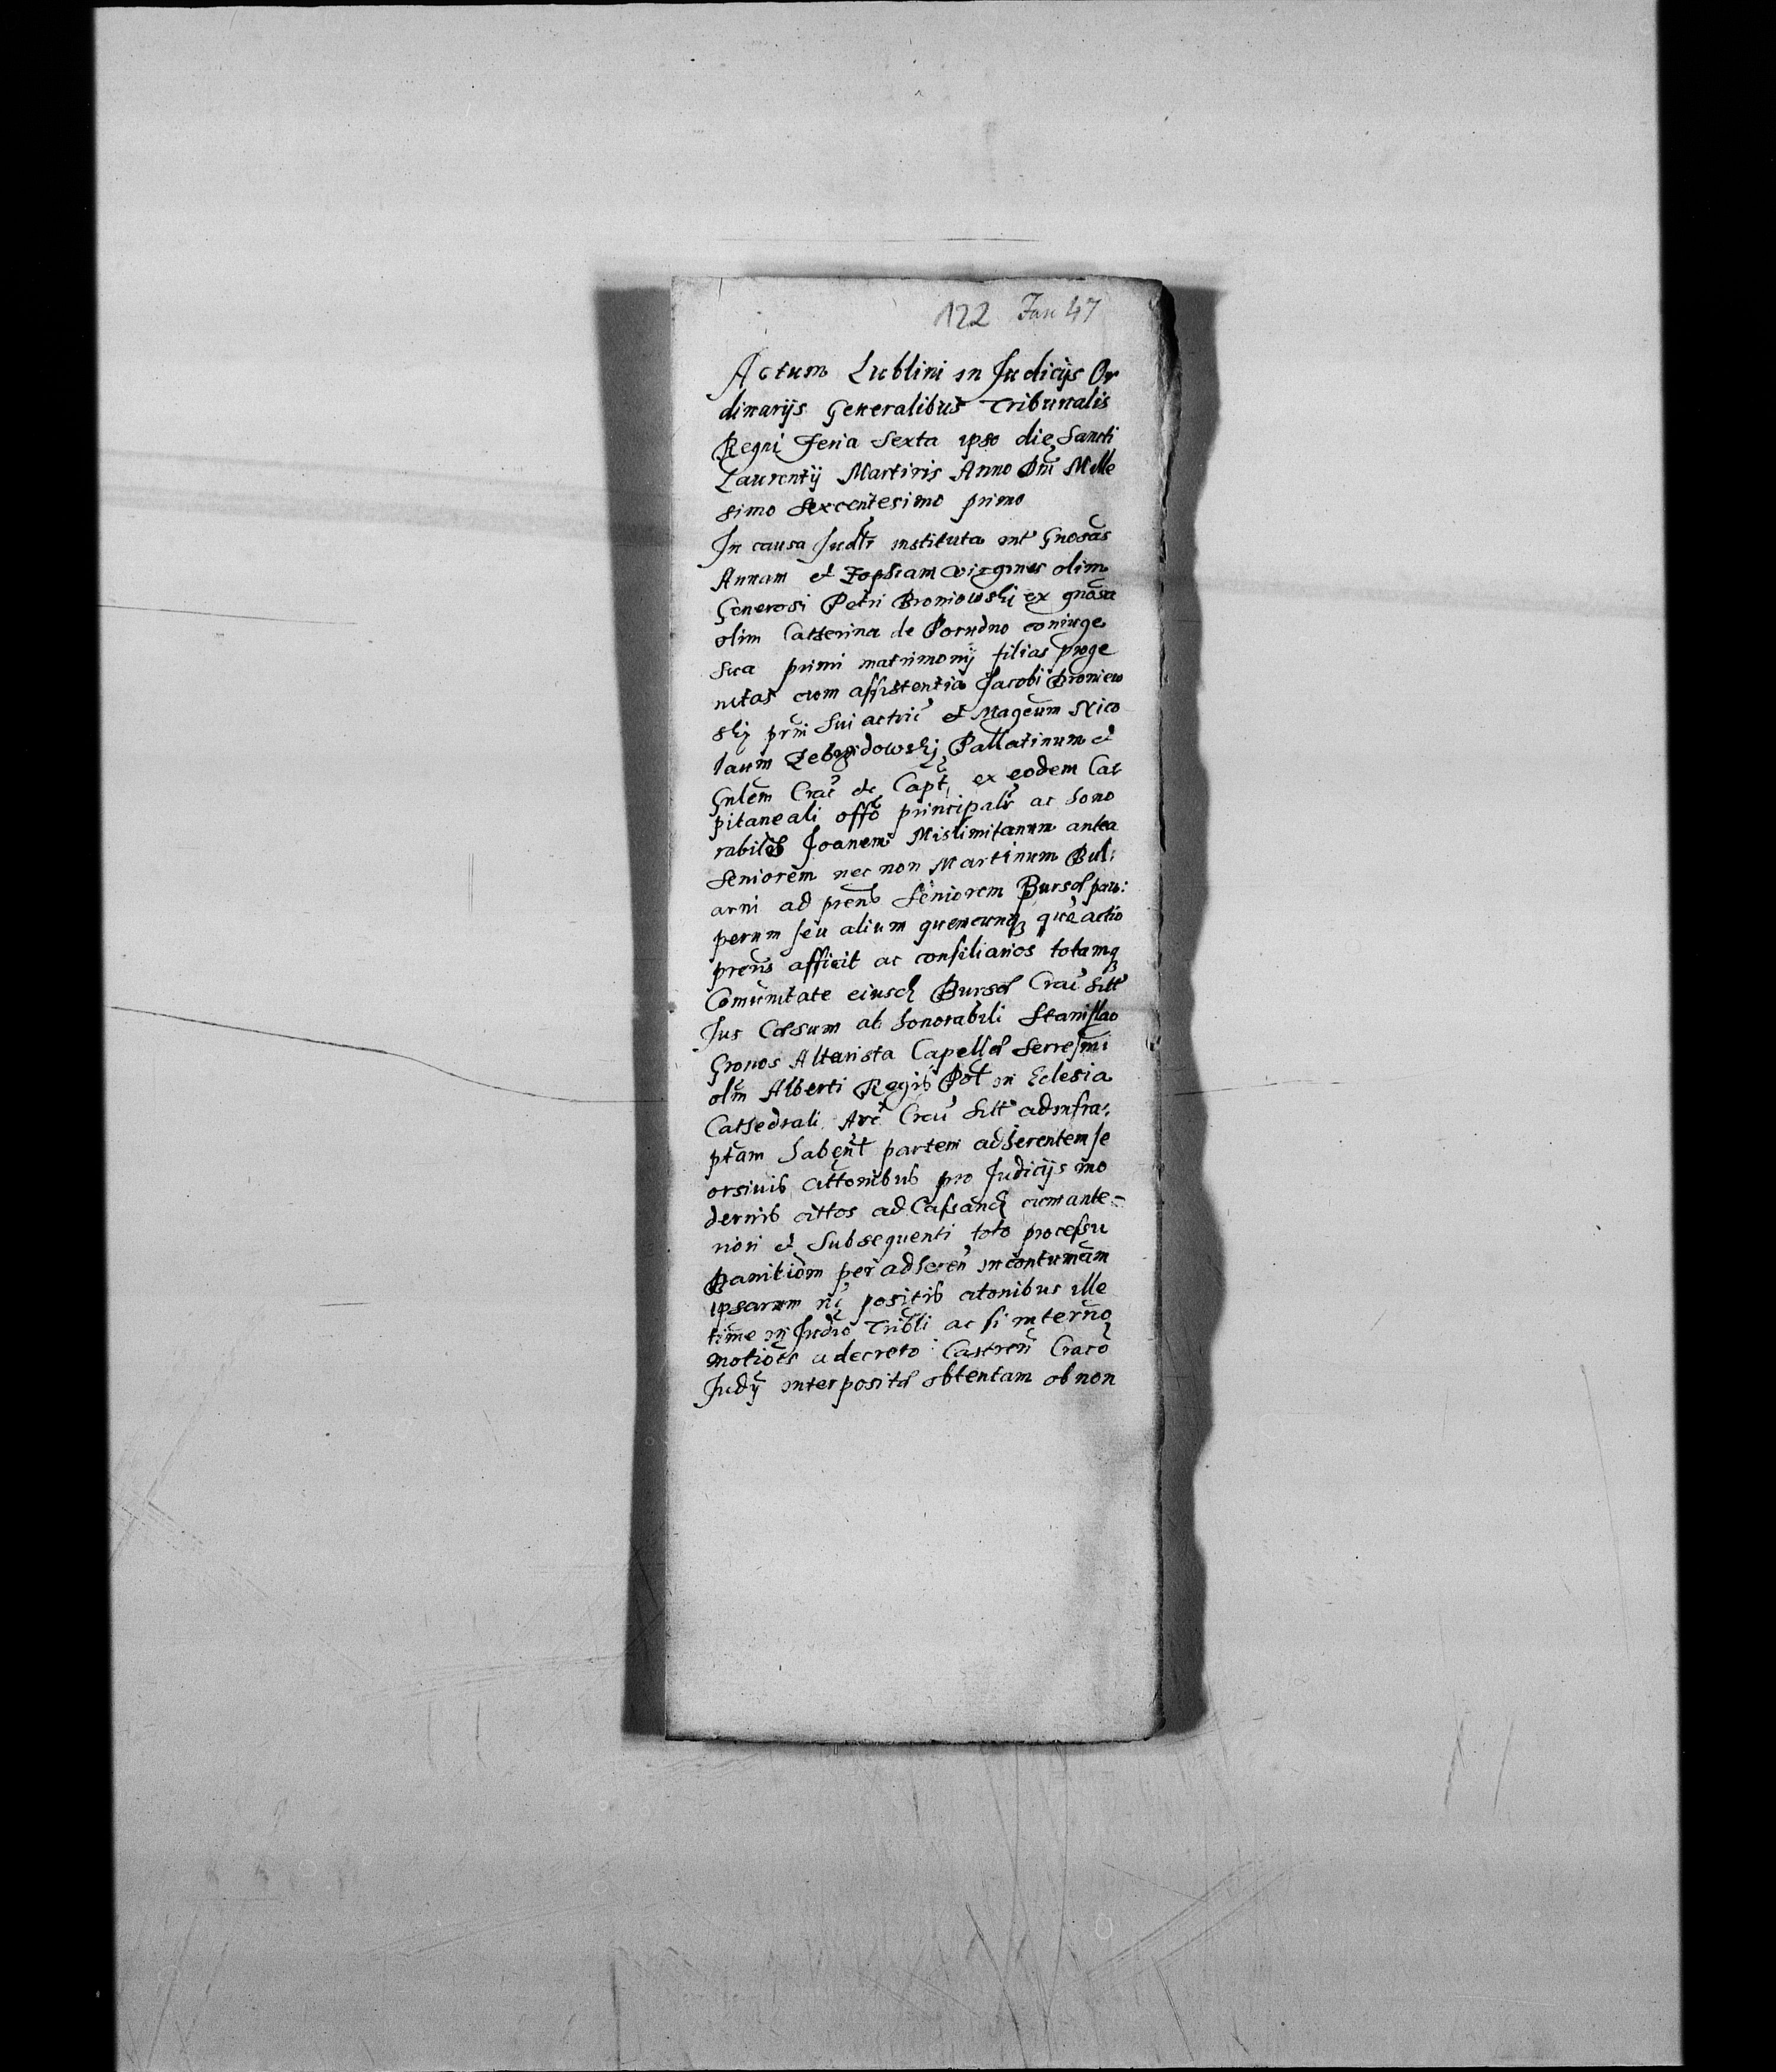 122 Jan 47
Actum Lublini in Judicijs Or
dinarijs Generalibus Tribunalis
Regni Feria Sexta ipso die Sancti
Laurentij Martiris Anno Dni Mille
simo Sexcentesimo primo
In causa Judtr instituta int Gnosas
Annam et Zophiam virgines olim
Generosi Petri Broniowskij ex gnosa
olim Catherina de Porudno coniuge
sua primi matrimonij filias proge
nitas cum assistentia Jacobi Broniew
skij prni sui actric et Magcum Nico
laum Zebrzidowskij Pallatinum et
Gnlem Crac etc Capt, ex eodem Ca
pitaneali offo principalr ac hono
rabiles Joanem Mislimitanum antea
Seniorem nec non Martinum Bul:
arni ad prens Seniorem Bursæ pau:
perum seu alium quemcunq que actio
prens afficit ac consiliarios totamq
Comunitate eiusd Bursæ Crac sitt
Jus Cæsum ab honorabili Stanislao
Gronos Altarista Capellæ Serresmi
olim Alberti Regis Pol in Eclesia
Cathedrali Arc Crac sitt ad infra:
ptam habent partem adherentem se
orsiuis attonibus pro Judicijs mo
dernis cittos ad Cassand cum ante=
riori et subsequenti toto processu
Banitiom per adheren in contumam
ipsarum positis atonibus ille
time in Judio Tribli ac si interno
motiois a decreto Castren Craco
Judij interpositæ obtentam ob non